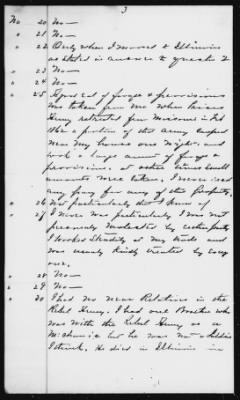 3
No 20 No —
" 21 No —
" 22 Only when I moved to Illinois
as stated in answer to question 2
" 23 No —
" 24 No —
" 25 A great deal of forage & provisions
was taken from me when Prices
Army retreated from Missouri in Feb
1862 a portion of this army camped
near my house one night, and
took a large amount of forage &
provisions. at other times small
amounts were taken. I never recd
any pay for any of this property.
" 26 Not particularly that I know of
" 27 I never was particularly I was not
presonaly molested by either party
I worked steadily at my trade and
was usualy kindly treated by every
one.
" 28 No —
" 29 No —
" 30 I had no near Relatives in the
Rebel Army. I had one Brother who
was with the Rebel Army as a
mechanic but he was not a soldier
I think. He died in Illinois in